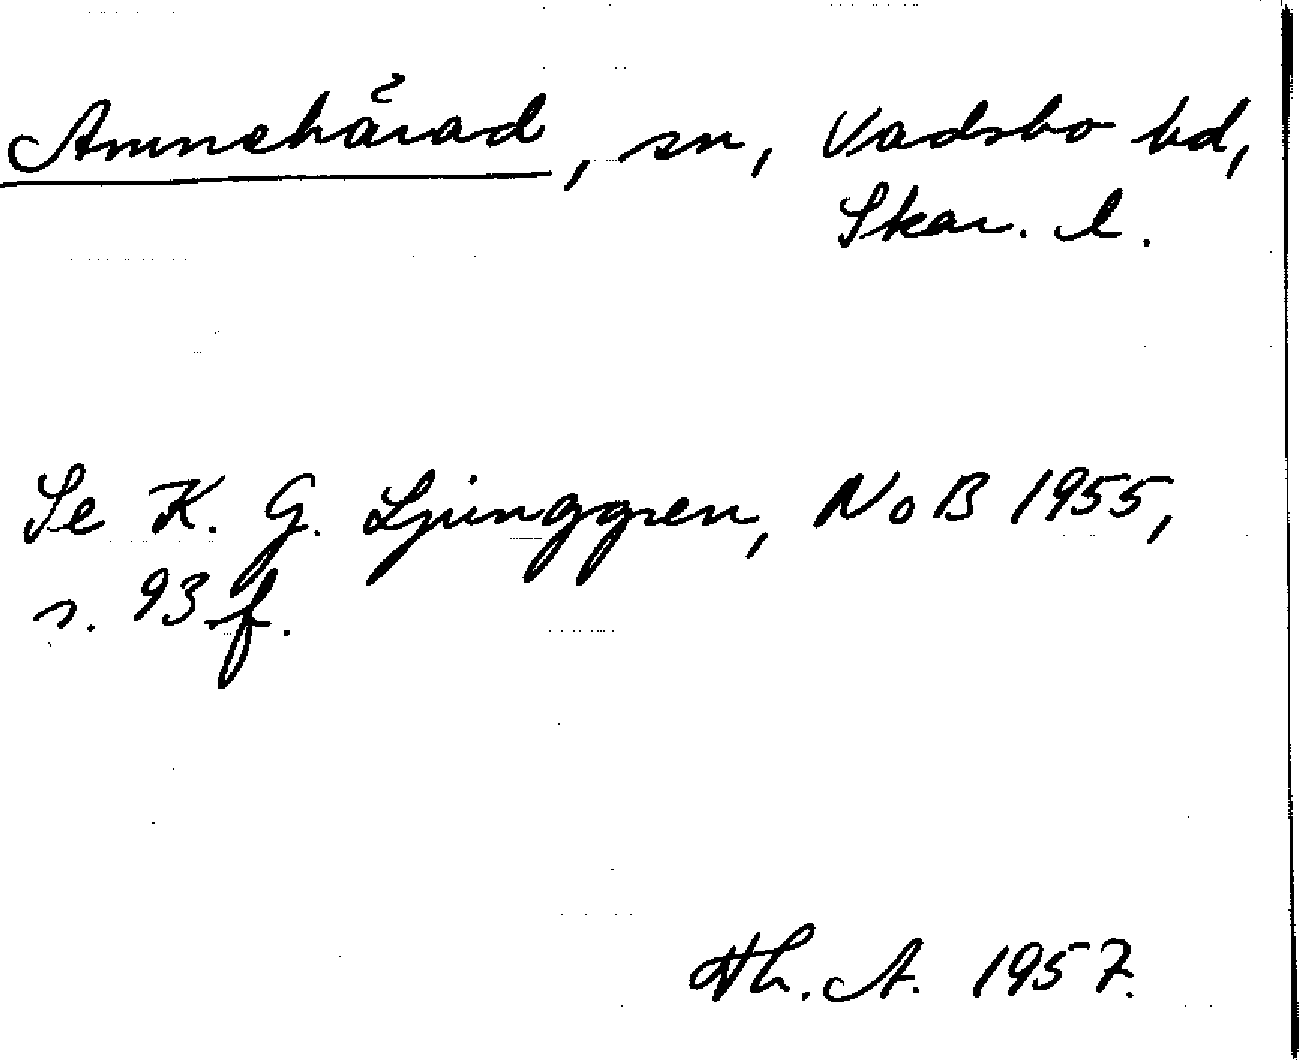 Amnehärad, sn, Vadsbo hd,
Skar. l.
Se K. G. Ljunggren, NoB 1955,
s. 93 f.
Th. A. 1957.